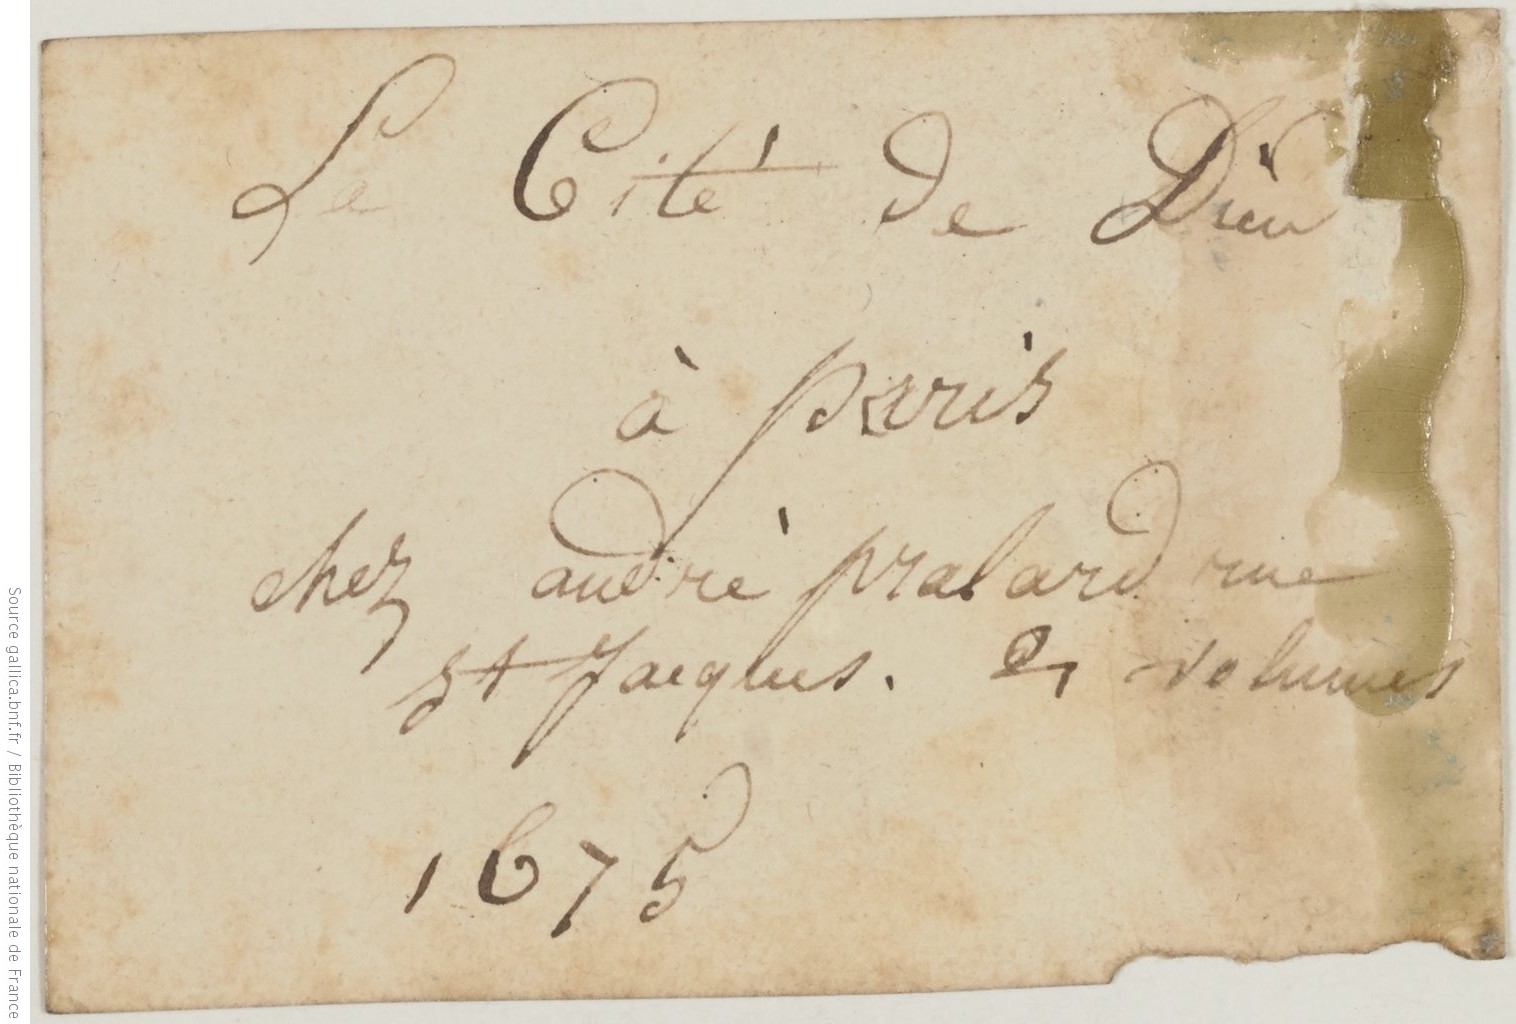 Le Cité de Dieu
à paris
chez andrè pralard rue
st Jacques. 2 volumes
1675
Source gallica.bnf.fr / Bibliothèque nationale de France